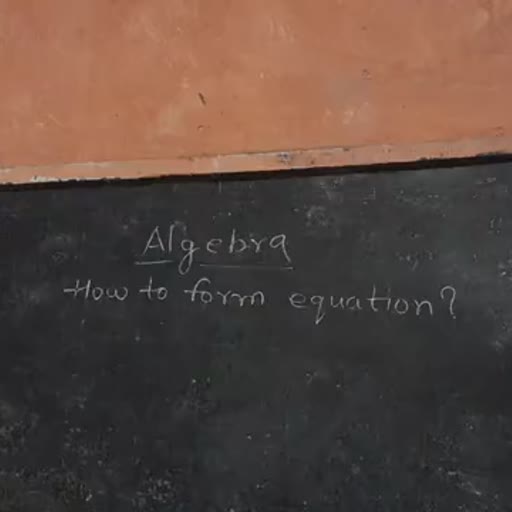 Algebra
How to form equation?